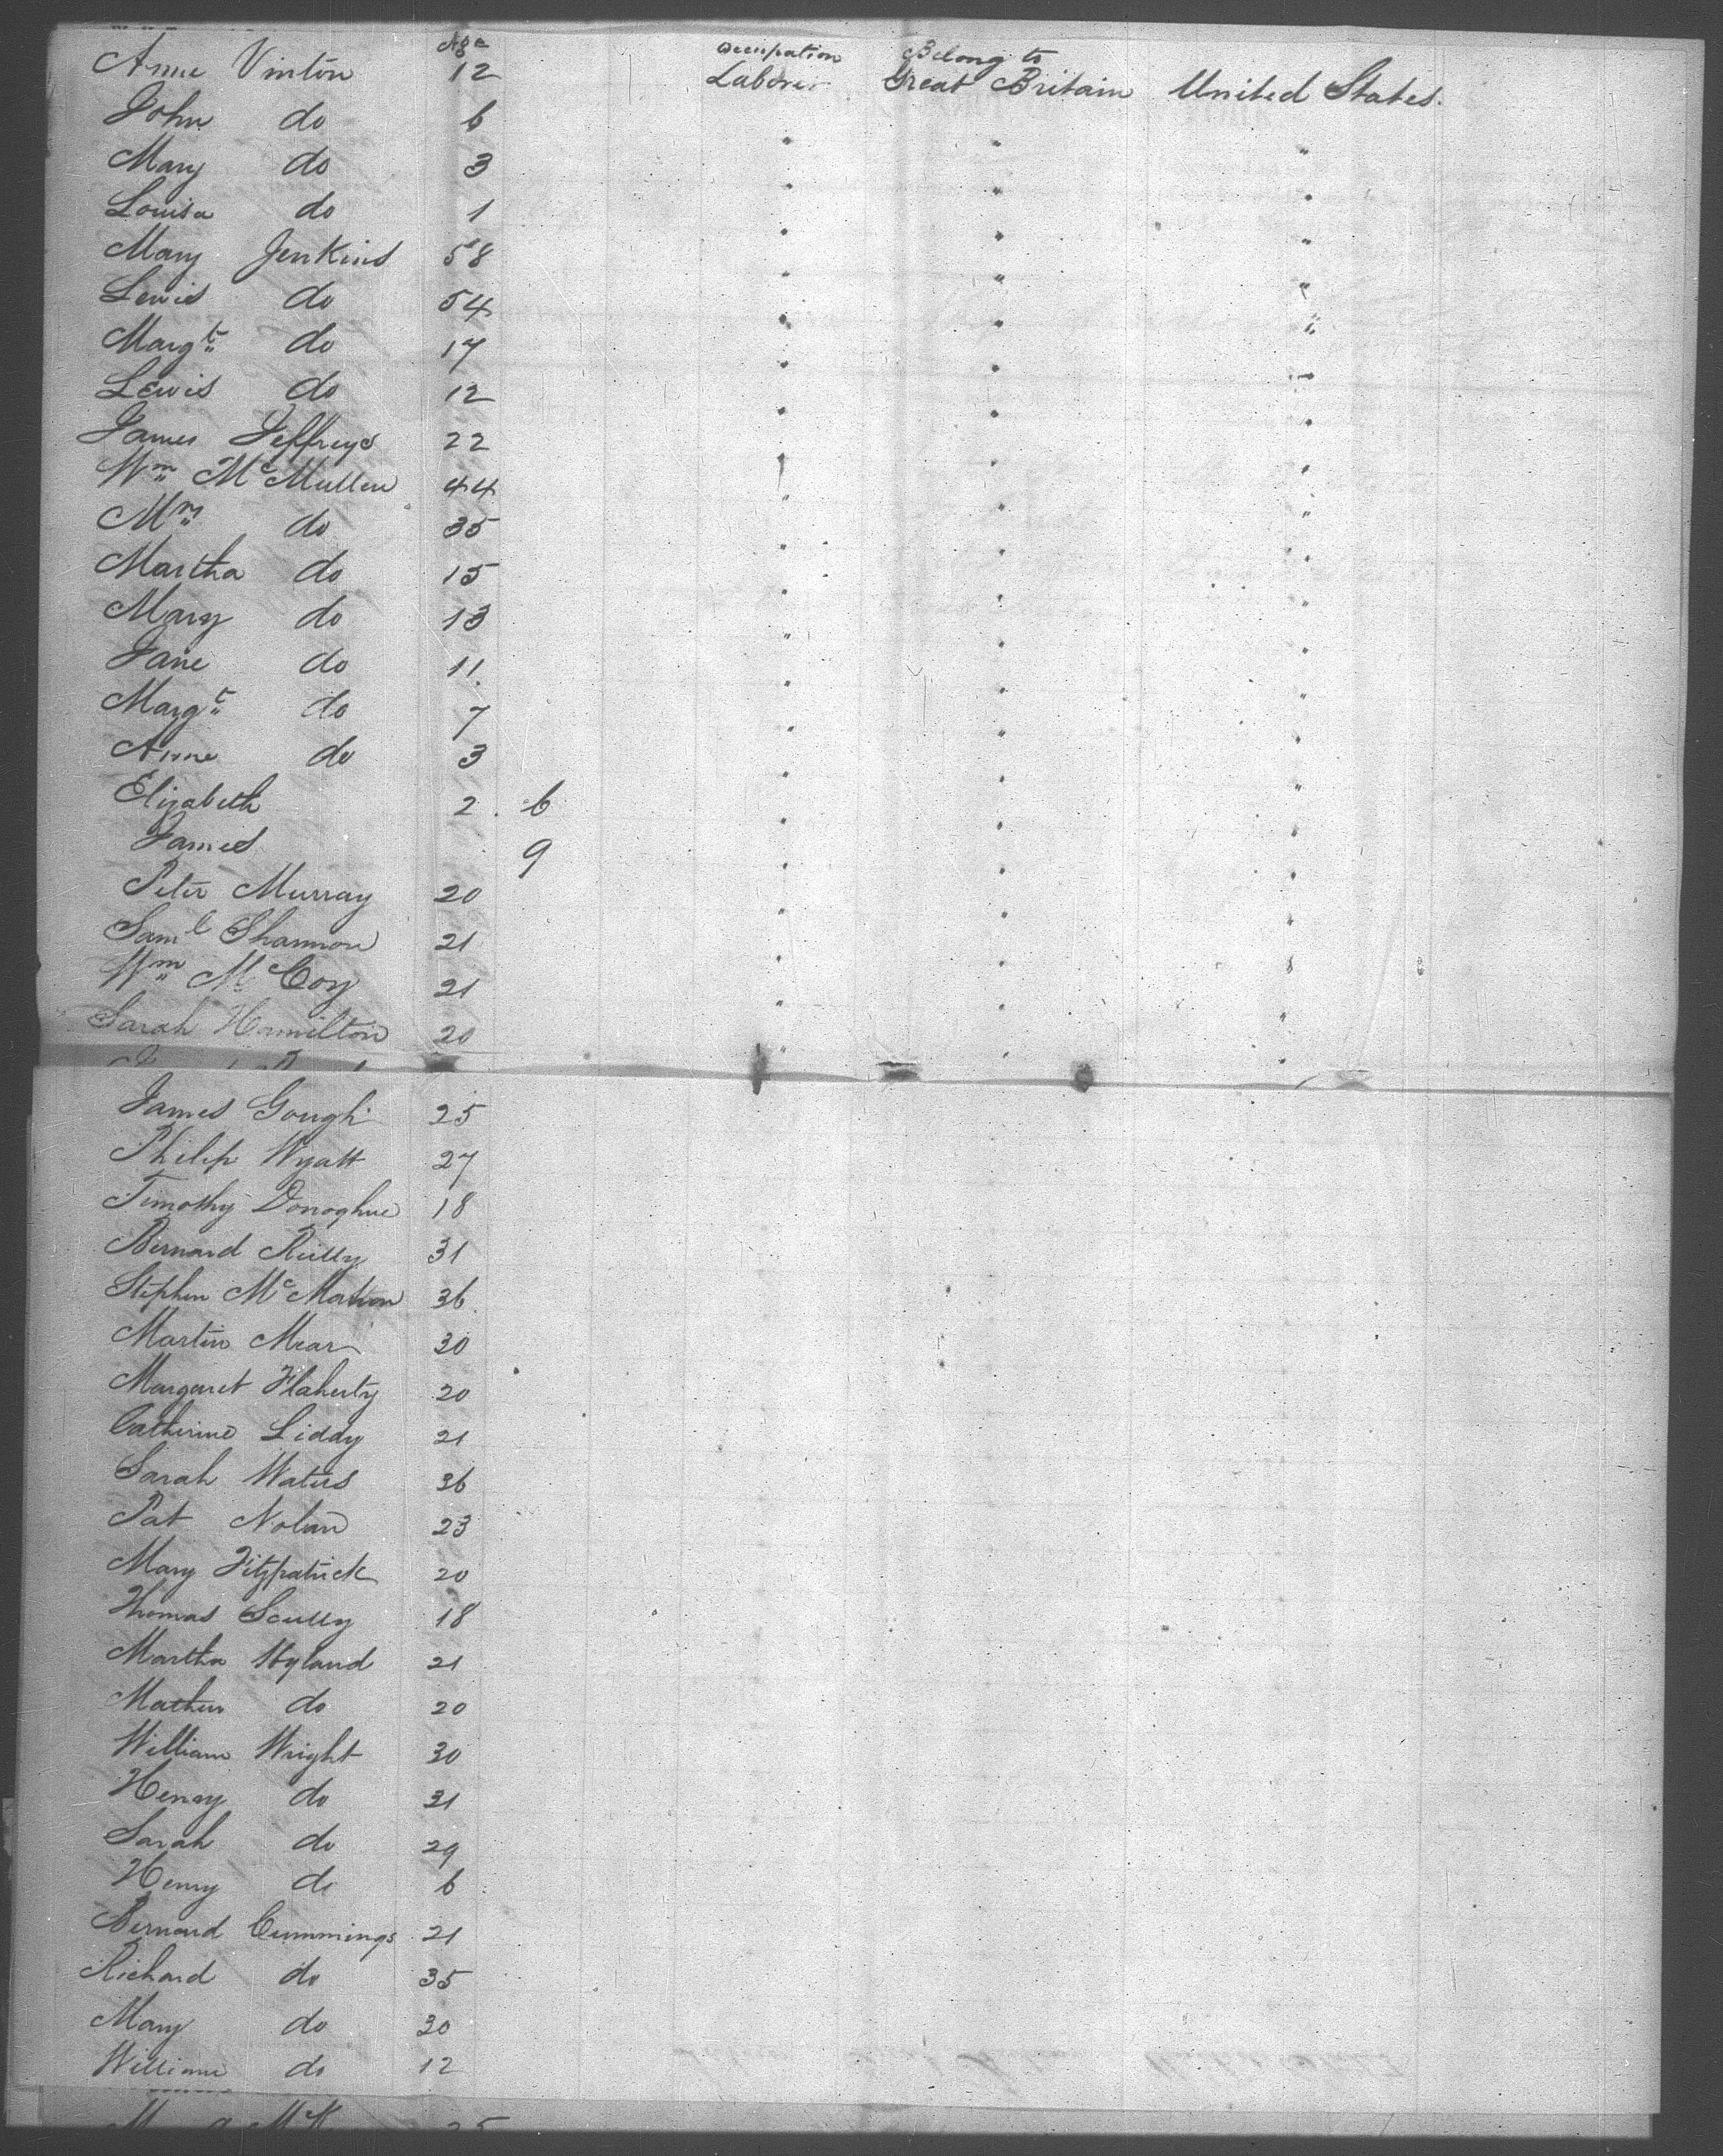 Age Occupation Belong to
Anne Vinton 12 Laborer Great Britain United States.
John do 6 " " "
Mary do 3 " " "
Louisa do 1 " " "
Mary Jenkins 58 " " "
Lewis do 54 " " "
Margt do 17 " " "
Lewis do 12 " " "
James Jeffreys 22 " " "
Wm McMullen 44 " " "
Mrs do 35 " " "
Martha do 15 " " "
Mary do 13 " " "
Jane do 11. " " "
Margt do 7 " " "
Anne do 3 " " "
Elizabeth 2. 6 " " "
James 9 " " "
Peter Murray 20 " " "
Saml Shannon 21 " " "
Wm McCoy 21 " " "
Sarah Hamilton 20 " " "
James Gough 25
Philip Wyatt 27
Timothy Donoghue 18
Bernard Reilly 31
Stephen McMahon 36
Martin Mear 30
Margaret Flaherty 20
Catherine Liddy 21
Sarah Waters 36
Pat Nolan 23
Mary Fitzpatrick 20
Thomas Scully 18
Martha Hyland 21
Mathew do 20
William Wright 30
Henry do 31
Sarah do 29
Henry do 6
Bernard Cummings 21
Richard do 35
Mary do 30
William do 12